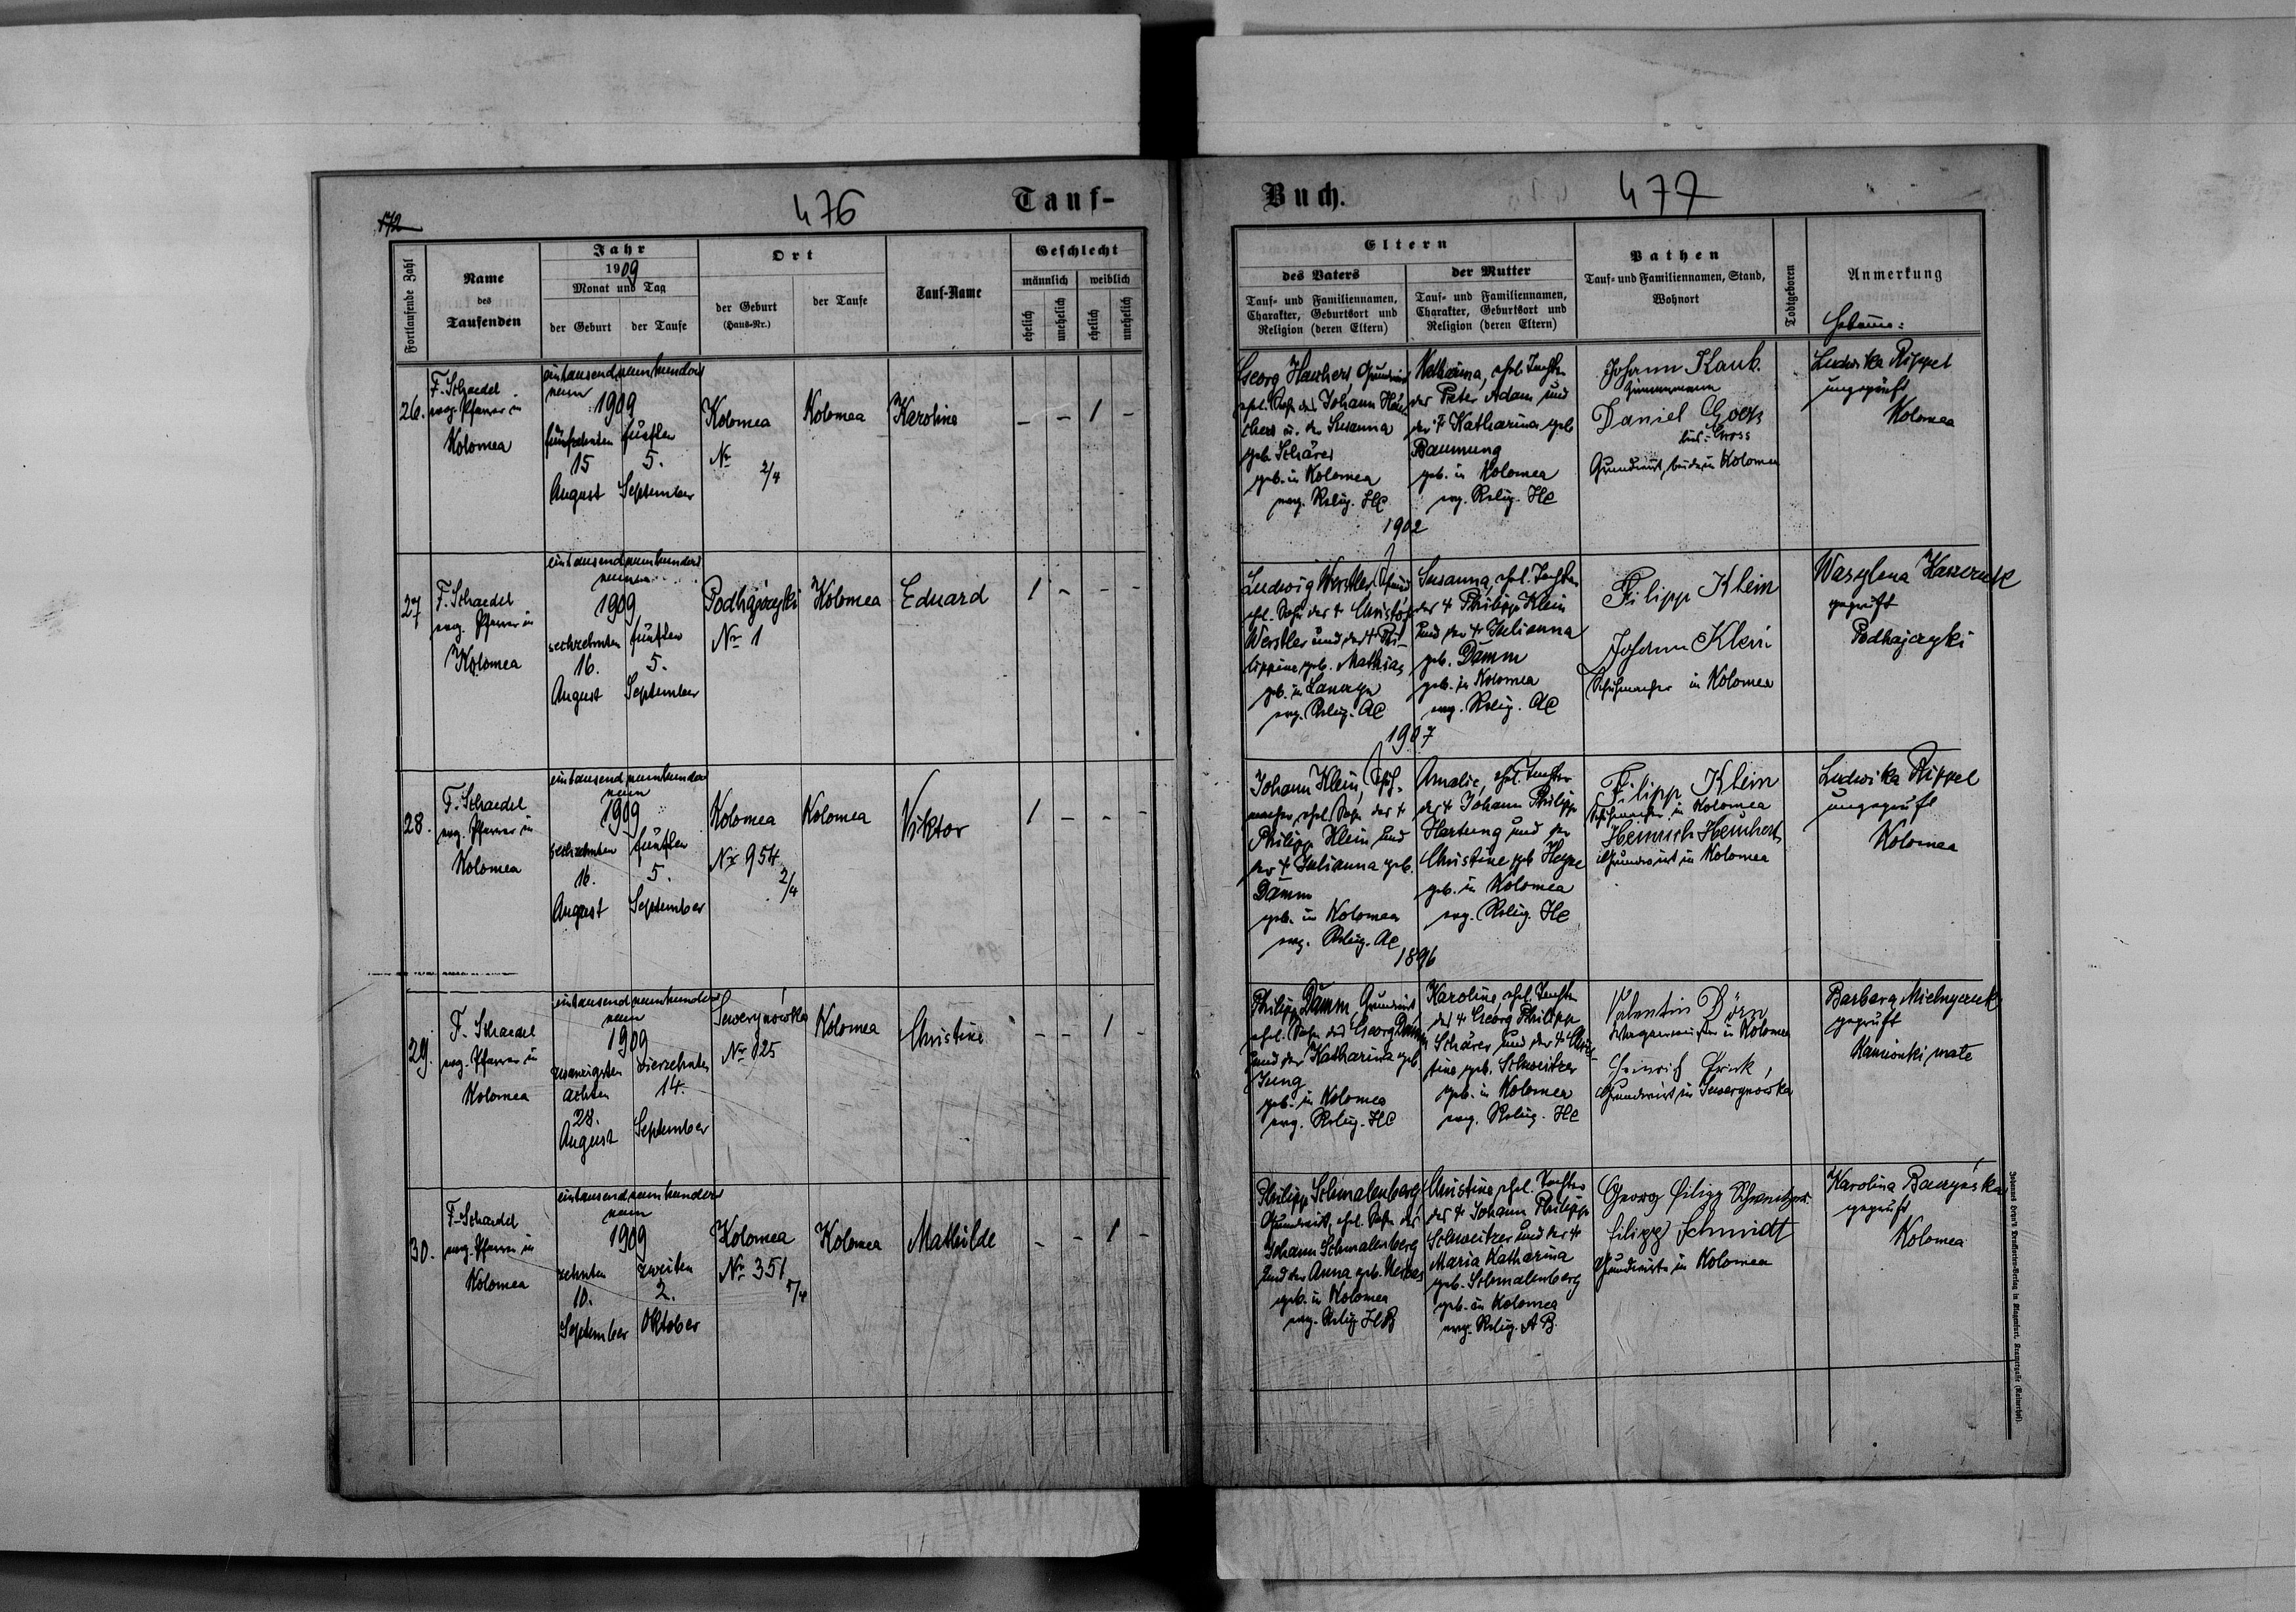 172
476
Tauf-
Fortlaufende Zahl
Name
des
Taufenden
Jahr
1909
Monat und Tag
der Geburt
der Taufe
Ort
der Geburt
(Haus-Nr.)
der Taufe
Tauf-Name
Geschlecht
männlich
weiblich
ehelich
unehelich
ehelich
unehelich
26.
F. Schaedel
evg. Pfarrer in
Kolomea
eintausendneunhundert
neun
1909
fünfzehnten
15
August
fünften
5.
September
Kolomea
Nr
2/4
Kolomea
Karoline
- - 1 -
27
F. Schaedel
evg. Pfarrer in
Kolomea
eintausendneunhundert
neun
1909
sechzehnten
16.
August
fünften
5.
September
Podhajczyki
Nr 1
Kolomea
Eduard
1 - - -
28.
F. Schaedel
evg. Pfarrer in
Kolomea
eintausendneunhundert
neun
1909
sechzehnten
16.
August
fünften
5.
September
Kolomea
Nr 954
2/4
Kolomea
Viktor
1 - - -
29.
F. Schaedel
evg. Pfarrer in
Kolomea
eintausendneunhundert
neun
1909
zwanzigsten
achten
28.
August
vierzehnten
14.
September
Sewerynówka
Nr 125
Kolomea
Christine
- - 1 -
30.
F. Schaedel
evg. Pfarrer in
Kolomea
eintausendneunhundert
neun
1909
zehnten
10.
September
zweiten
2.
Oktober
Kolomea
Nr 351
Kolomea
Mathilde
- - 1 -
Buch.
477
Eltern
des Vaters
Tauf- und Familiennamen,
Charakter, Geburtsort und
Religion (deren Eltern)
der Mutter
Tauf- und Familiennamen,
Charakter, Geburtsort und
Religion (deren Eltern)
Pathen
Tauf- und Familiennamen, Stand,
Wohnort
Todtgeboren
Anmerkung
Hebamme:
Georg Hauchert, Grundwirt
ehel. Sohn des Johann
u. der Susanna
geb. Schärer
geb. in Kolomea
evg. Relig. HC
1902
Katharina, ehel. Tochter
der Peter Adam und
der + Katharina geb
Baumung
geb. in Kolomea
evg. Relig. HC
Johann Kaub.
Zimmermann
Daniel Goos
Gross
Grundwirt, beide in Kolomea
Ludwika Rippel
ungeprüft
Kolomea
Ludwig Werstler,
ehel. Sohn der +
Werstler und der +
lippine geb. Mathias
geb. in
evg. Relig. AC
1907
Susanna, ehel. Tochter
der + Philipp Klein
und der + Julianna
geb. Damm
geb. in Kolomea
evg. Relig. AC
Filipp Klein
Johann Klein
Schuhmacher in Kolomea
Wasylena
geprüft
Podhajczyki
Johann Klein, Schuh-
macher, ehel. Sohn der +
Philipp Klein und
der + Julianna geb.
Damm
geb. in Kolomea
evg. Relig. AC
1896
Amalie, ehel. Tochter
der + Johann Philipp
Hartung und der
Christine geb
geb. in Kolomea
evg. Relig. HC
Filipp Klein
Schuhmacher in Kolomea
Heinrich Heuchert
Grundwirt in Kolomea
Ludwika Rippel
ungeprüft
Kolomea
Philipp Damm, Grundwirt
ehel. Sohn des Georg Damm
und der Katharina geb
Jung
geb. in Kolomea
evg. Relig. HC
Karoline, ehel. Tochter
des + Georg Philipp
Schärer und der + Chris-
tine geb. Schweitzer
geb. in Kolomea
evg. Relig. HC
Valentin Dörn
Wagnermeister in Kolomea
Heinrich
Grundwirt in Sewerynówka
Barbara
geprüft
Kamionki małe
Philipp Schmalenberg
Grundwirt, ehel. Sohn des
Johann Schmalenberg
und der Anna geb.
geb. in Kolomea
evg. Relig. HB
Christine, ehel. Tochter
des + Johann Philipp
Schweitzer und der +
Maria Katharina
geb. Schmalenberg
geb. in Kolomea
evg. Relig. AB.
Georg Filipp Schweitzer
Filipp Schmidt
Grundwirte in Kolomea
Karolina
geprüft
Kolomea